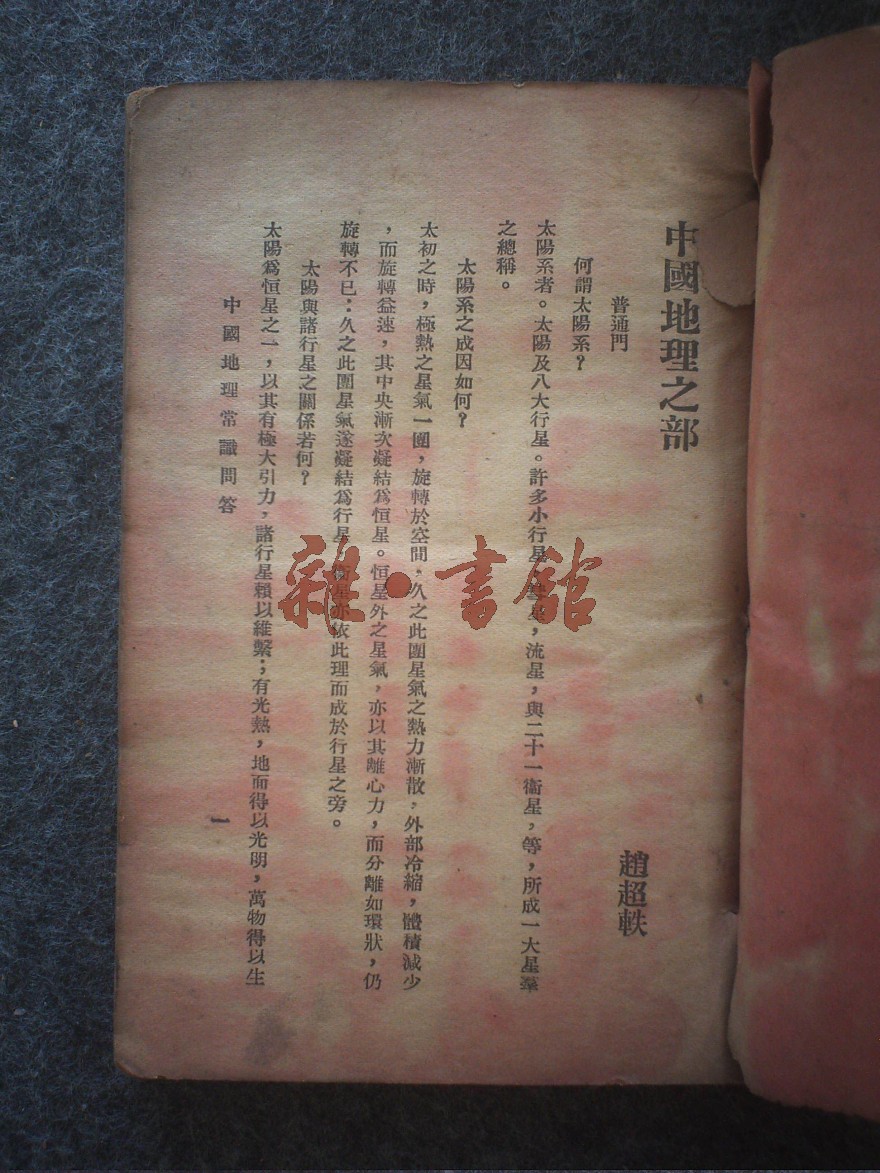 中國地理之部
趙超軼
普通門
何謂太陽系?
太陽系者。太陽及八大行星。許多小行星,彗星,流星,與二十一衞星,等,所成一大星羣
之總稱。
太陽系之成因如何?
太初之時,極熱之星氣一團,旋轉於空間,久之此團星氣之熱力漸散,外部冷縮,體積減少
,而旋轉益速,其中央漸次凝結爲恒星。恒星外之星氣,亦以其離心力,而分離如環狀,仍
旋轉不已:久之此團星氣遂凝結爲行星,衞星亦依此理而成於行星之旁。
太陽與諸行星之關係若何?
太陽爲恒星之一,以其有極大引力,諸行星賴以維繫;有光熱,地面得以光明,萬物得以生
中國地理常識問答
一
雜·書館